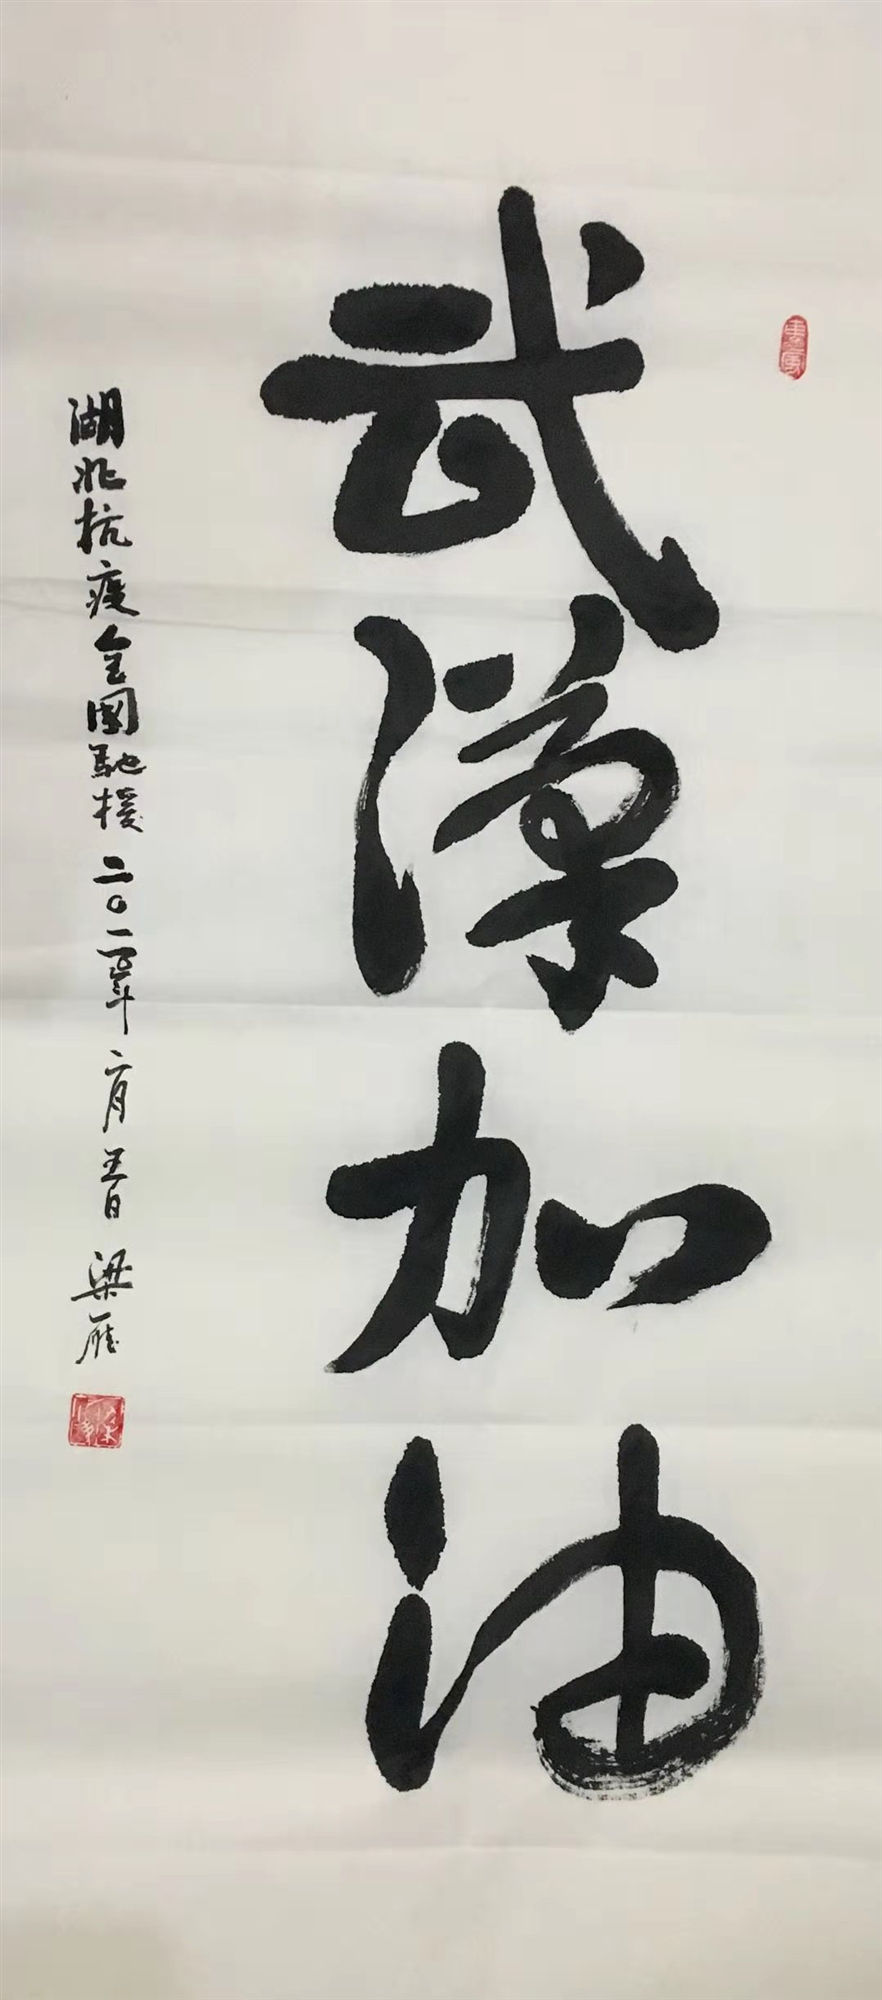 武漢加油
湖北抗疫全國馳援二〇二〇年二月五日梁雁